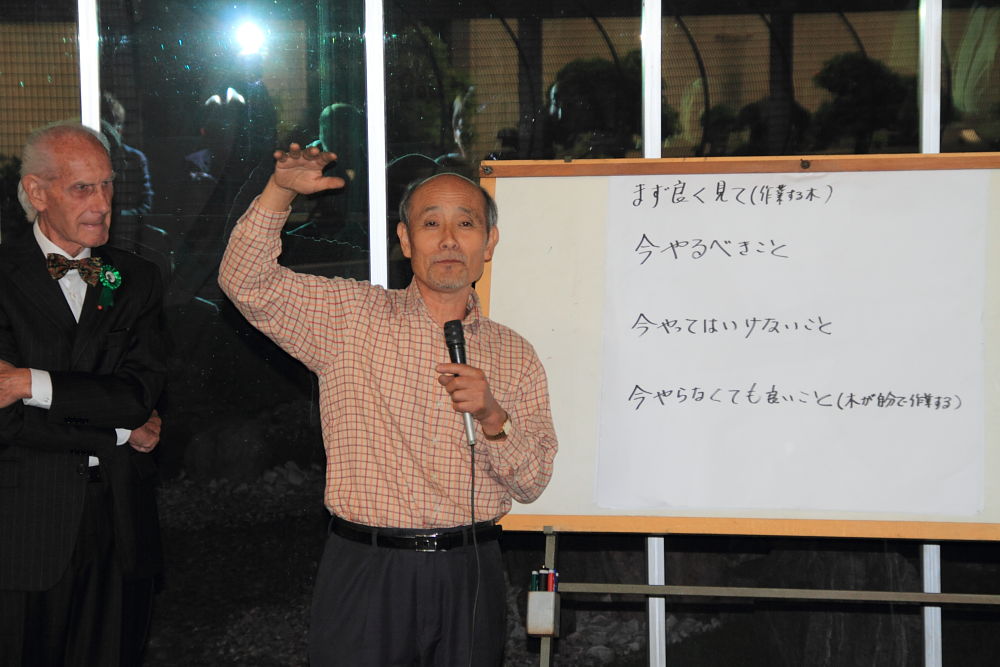 まず良く見て(作業する木)
今やるべきこと
今やってはいけないこと
今やらなくても良いこと(木が自分で作業する)